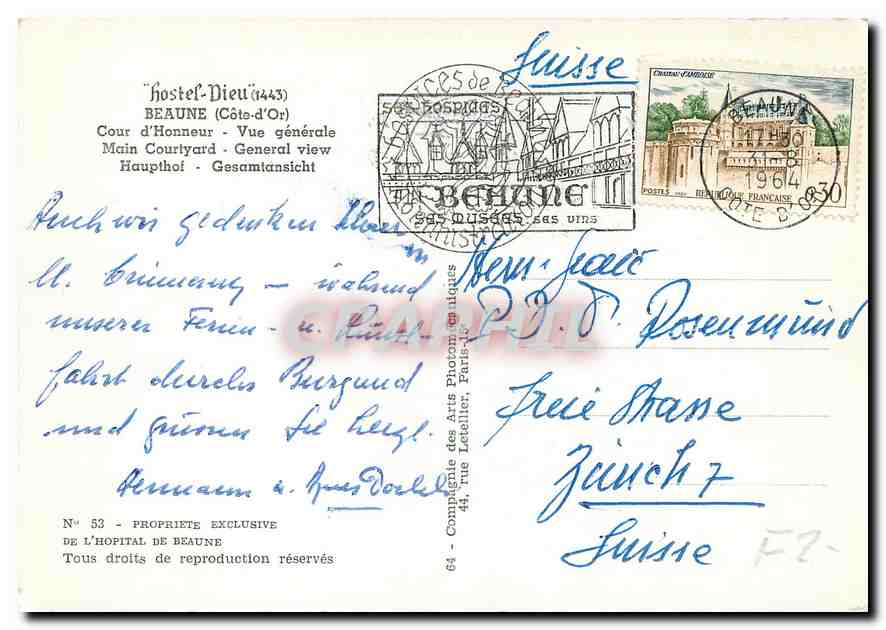 "hostel-Dieu" (1443)
BEAUNE (Côte-d'Or)
Cour d'Honneur - Vue générale
Main Courtyard - General view
Haupthof - Gesamtansicht
Auch wir gedenken
während
unserer Ferien- u.
fahrt durchs Burgund
und grüssen Sie herzl.
Hermann u.
N° 53 - PROPRIETE EXCLUSIVE
DE L'HOPITAL DE BEAUNE
Tous droits de reproduction réservés
64 - Compagnie des Arts Photomécaniques
44, rue Letellier, Paris-15
Suisse
SES HOSPICES
BEAUNE
SES MUSÉES SES VINS
CHATEAU D'AMBOISE
POSTES REPUBLIQUE FRANÇAISE 0,30
BEAUNE
31-8
1964
COTE D'OR
Rosenmund
Freie Strasse
Zürich 7
Suisse
CPAPHIL
F2-